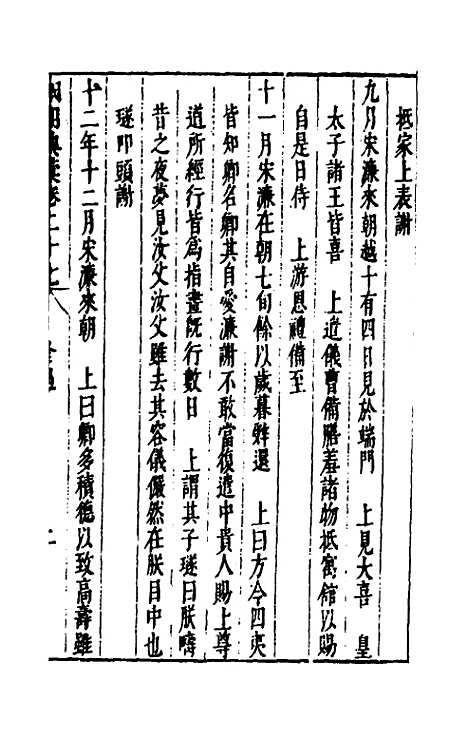 抵家上表謝
九月宋濂來朝越十有四日見於端門　上見大喜　皇
太子諸王皆喜　上遣儀曹備膳羞諸物抵寓館以賜
自是日侍　上游恩禮備至
十一月宋濂在朝七旬餘以歲暮辭還　上曰方今四夷
皆知卿名卿其自愛濂謝不敢當復遣中貴人賜上尊
道所經行皆為指畫既行數日　上謂其子璲曰朕疇
昔之夜夢見汝父汝父雖去其容儀儼然在朕目中也
璲叩頭謝
十二年十二月宋濂來朝　上曰卿多積德以致高壽雖
卷二十七